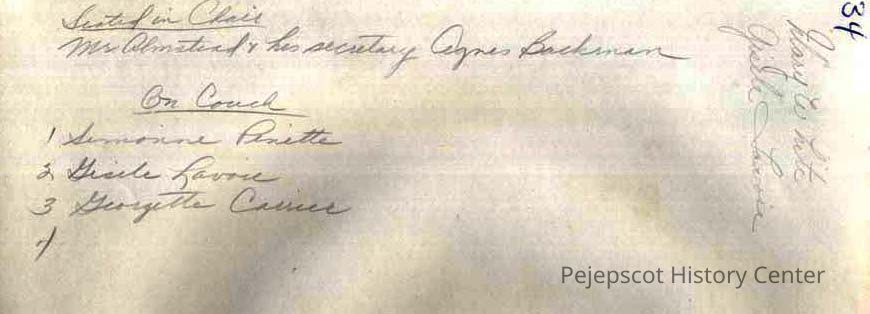 Seated in Chair
Mr Olmstead & his secretary Agnes Backman
On Couch
1 Simonne Pinette
2 Gisele Lavoie
3 Georgette Carrier
4
34
Gisele Lavoie
Pejepscot History Center